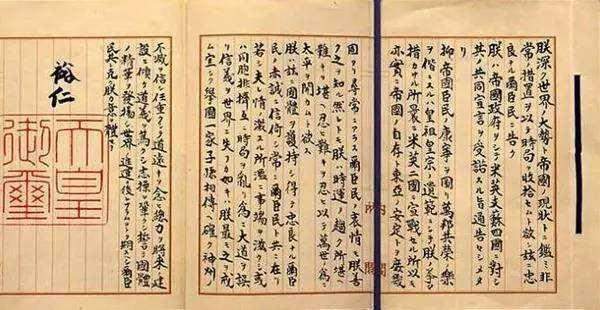 朕深ク世界ノ大勢ト帝國ノ現狀トニ鑑ミ非
常ノ措置ヲ以テ時局ヲ收拾セムト欲シ茲ニ忠
良ナル爾臣民ニ告ク
朕ハ帝國政府ヲシテ米英支蘇四國ニ對シ
其ノ共同宣言ヲ受諾スル旨通告セシメタリ
抑々帝國臣民ノ康寧ヲ圖リ萬邦共榮ノ樂
ヲ偕ニスルハ皇祖皇宗ノ遺範ニシテ朕ノ拳々
措カサル所曩ニ米英二國ニ宣戰セル所以モ
亦實ニ帝國ノ自存ト東亞ノ安定トヲ庶幾
内閣
固ヨリ尋常ニアラス爾臣民ノ衷情モ朕善
ク之ヲ知ル然レトモ朕ハ時運ノ趨ク所堪ヘ
難キヲ堪ヘ忍ヒ難キヲ忍ヒ以テ萬世ノ爲ニ
太平ヲ開カムト欲ス
朕ハ茲ニ國體ヲ護持シ得テ忠良ナル爾臣
民ノ赤誠ニ信倚シ常ニ爾臣民ト共ニ在リ
若シ夫レ情ノ激スル所濫ニ事端ヲ滋クシ或
ハ同胞排擠互ニ時局ヲ亂リ爲ニ大道ヲ誤
リ信義ヲ世界ニ失フカ如キハ朕最モ之ヲ戒
ム宜シク擧國一家子孫相傳ヘ確ク神州ノ
不滅ヲ信シ任重クシテ道遠キヲ念ヒ總力ヲ將來ノ建
設ニ傾ケ道義ヲ篤クシ志操ヲ鞏クシ誓テ國體
ノ精華ヲ發揚シ世界ノ進運ニ後レサラムコトヲ期スヘシ爾臣
民其レ克ク朕カ意ヲ體セヨ
裕仁
天皇
御璽